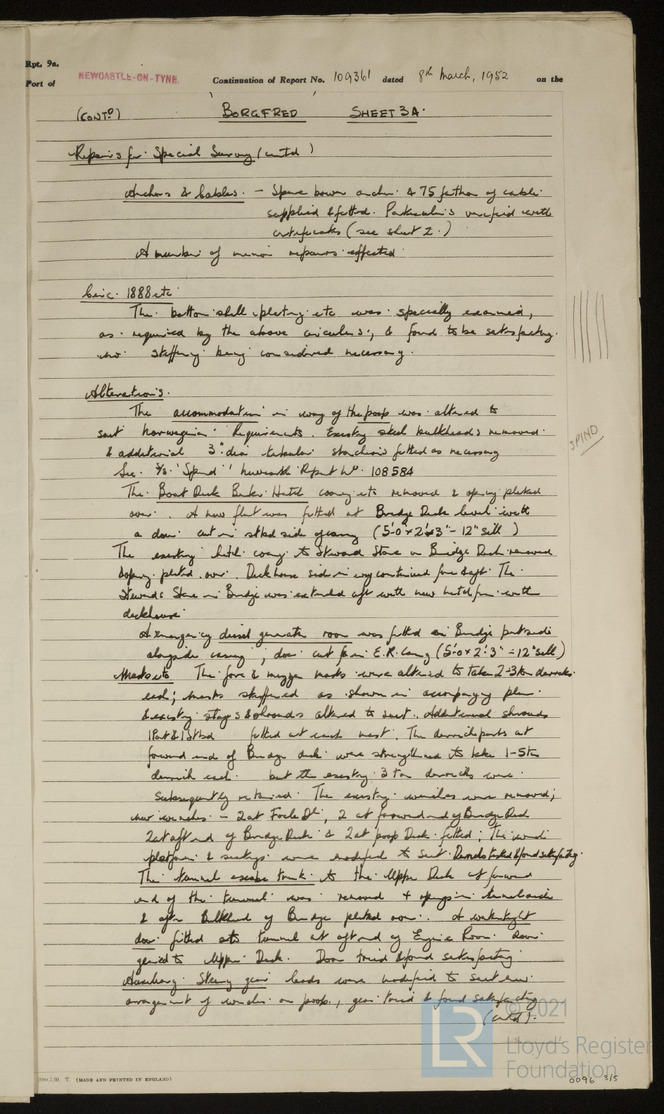 Rpt. 9a.
Port of NEWCASTLE-ON-TYNE. Continuation of Report No. 109361 dated 8th March, 1952 on the
(CONTD) 'BORGFRED' SHEET 3A.
Repairs for Special Survey (contd)
Anchors & Cables. - Spare bower anchor & 75 fathom of cable
supplied & fitted. Particulars verified with
certificates (see sheet 2.)
A number of minor repairs effected
Circ. 1888 etc
The bottom shell plating etc was specially examined,
as required by the above circulars, & found to be satisfactory.
no stiffening being considered necessary.
Alterations.
The accommodation in way of the poop was altered to
suit Norwegian Requirements. Existing steel bulkheads removed
& additional 3" dia tubular stanchions fitted as necessary
See S/S 'Spind' Newcastle Report No. 108584
SPIND
The Boat Deck Bunker Hatch coaming etc removed & opening plated
over. A new flat was fitted at Bridge Deck level with
a door cut in stbd side of casing (5'-0" x 2'-3" - 12" sill)
The existing hatch coaming to Steward Store on Bridge Deck removed
& opening plated over. Deckhouse side in way continued fore & aft. The
Stewards Store in Bridge was extended aft with new hatch from with
deckhouse.
A emergency diesel generator room was fitted in Bridge port side
alongside casing, door cut from E.R. Casing (5'-0" x 2'-3" - 12" sill)
Masts etc The fore & mizzen masts were altered to take 2-3 ton derricks
each; masts stiffened as shown in accompanying plan
& existing stays & shrouds altered to suit. Additional shrouds
1 Port & 1 Stbd fitted at each mast. The derrick posts at
forward end of Bridge deck were strengthened to take 1-5 ton
derrick each but the existing 3 ton derricks were
subsequently retained. The existing winches were removed;
new winches - 2 at Focle Dk, 2 at forward end of Bridge Deck
2 at aft end of Bridge Deck & 2 at poop Deck fitted; The winch
platform & seatings were modified to suit. Derricks tested & found satisfactory.
The tunnel escape trunk to the Upper Deck at forward
end of the tunnel was removed & openings in tunnel side
& after Bulkhead of Bridge plated over. A watertight
door fitted at tunnel at aft end of Engine Room. Door
geared to Upper Deck. Door tried & found satisfactory
Auxiliary Steering gear leads were modified to suit new
arrangement of winches on poop, gear tried & found satisfactory
(contd).
© 2021
LR
Lloyd's Register
Foundation
T. (MADE AND PRINTED IN ENGLAND)
0096 3/5